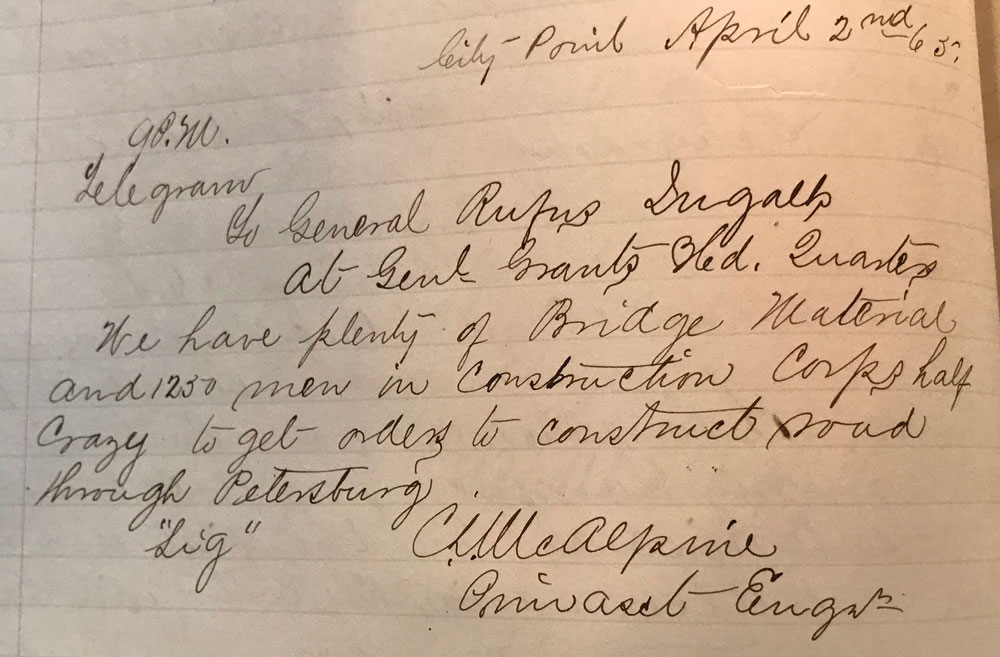 City Point April 2nd 65.
9 P.M.
Telegram
To General Rufus Ingalls
At Genl Grants Hed. Quarters
We have plenty of Bridge Material
and 1250 men in Construction Corps half
Crazy to get orders to construct road
through Petersburg.
"Sig" C.L. McAlpine
Prin asst Engr